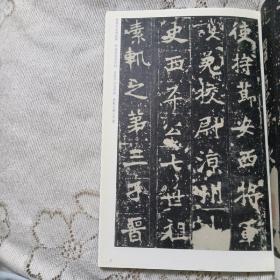 使持節安西將軍
護羌校尉涼州刺
史西平公七世祖
素軌之第三子晉